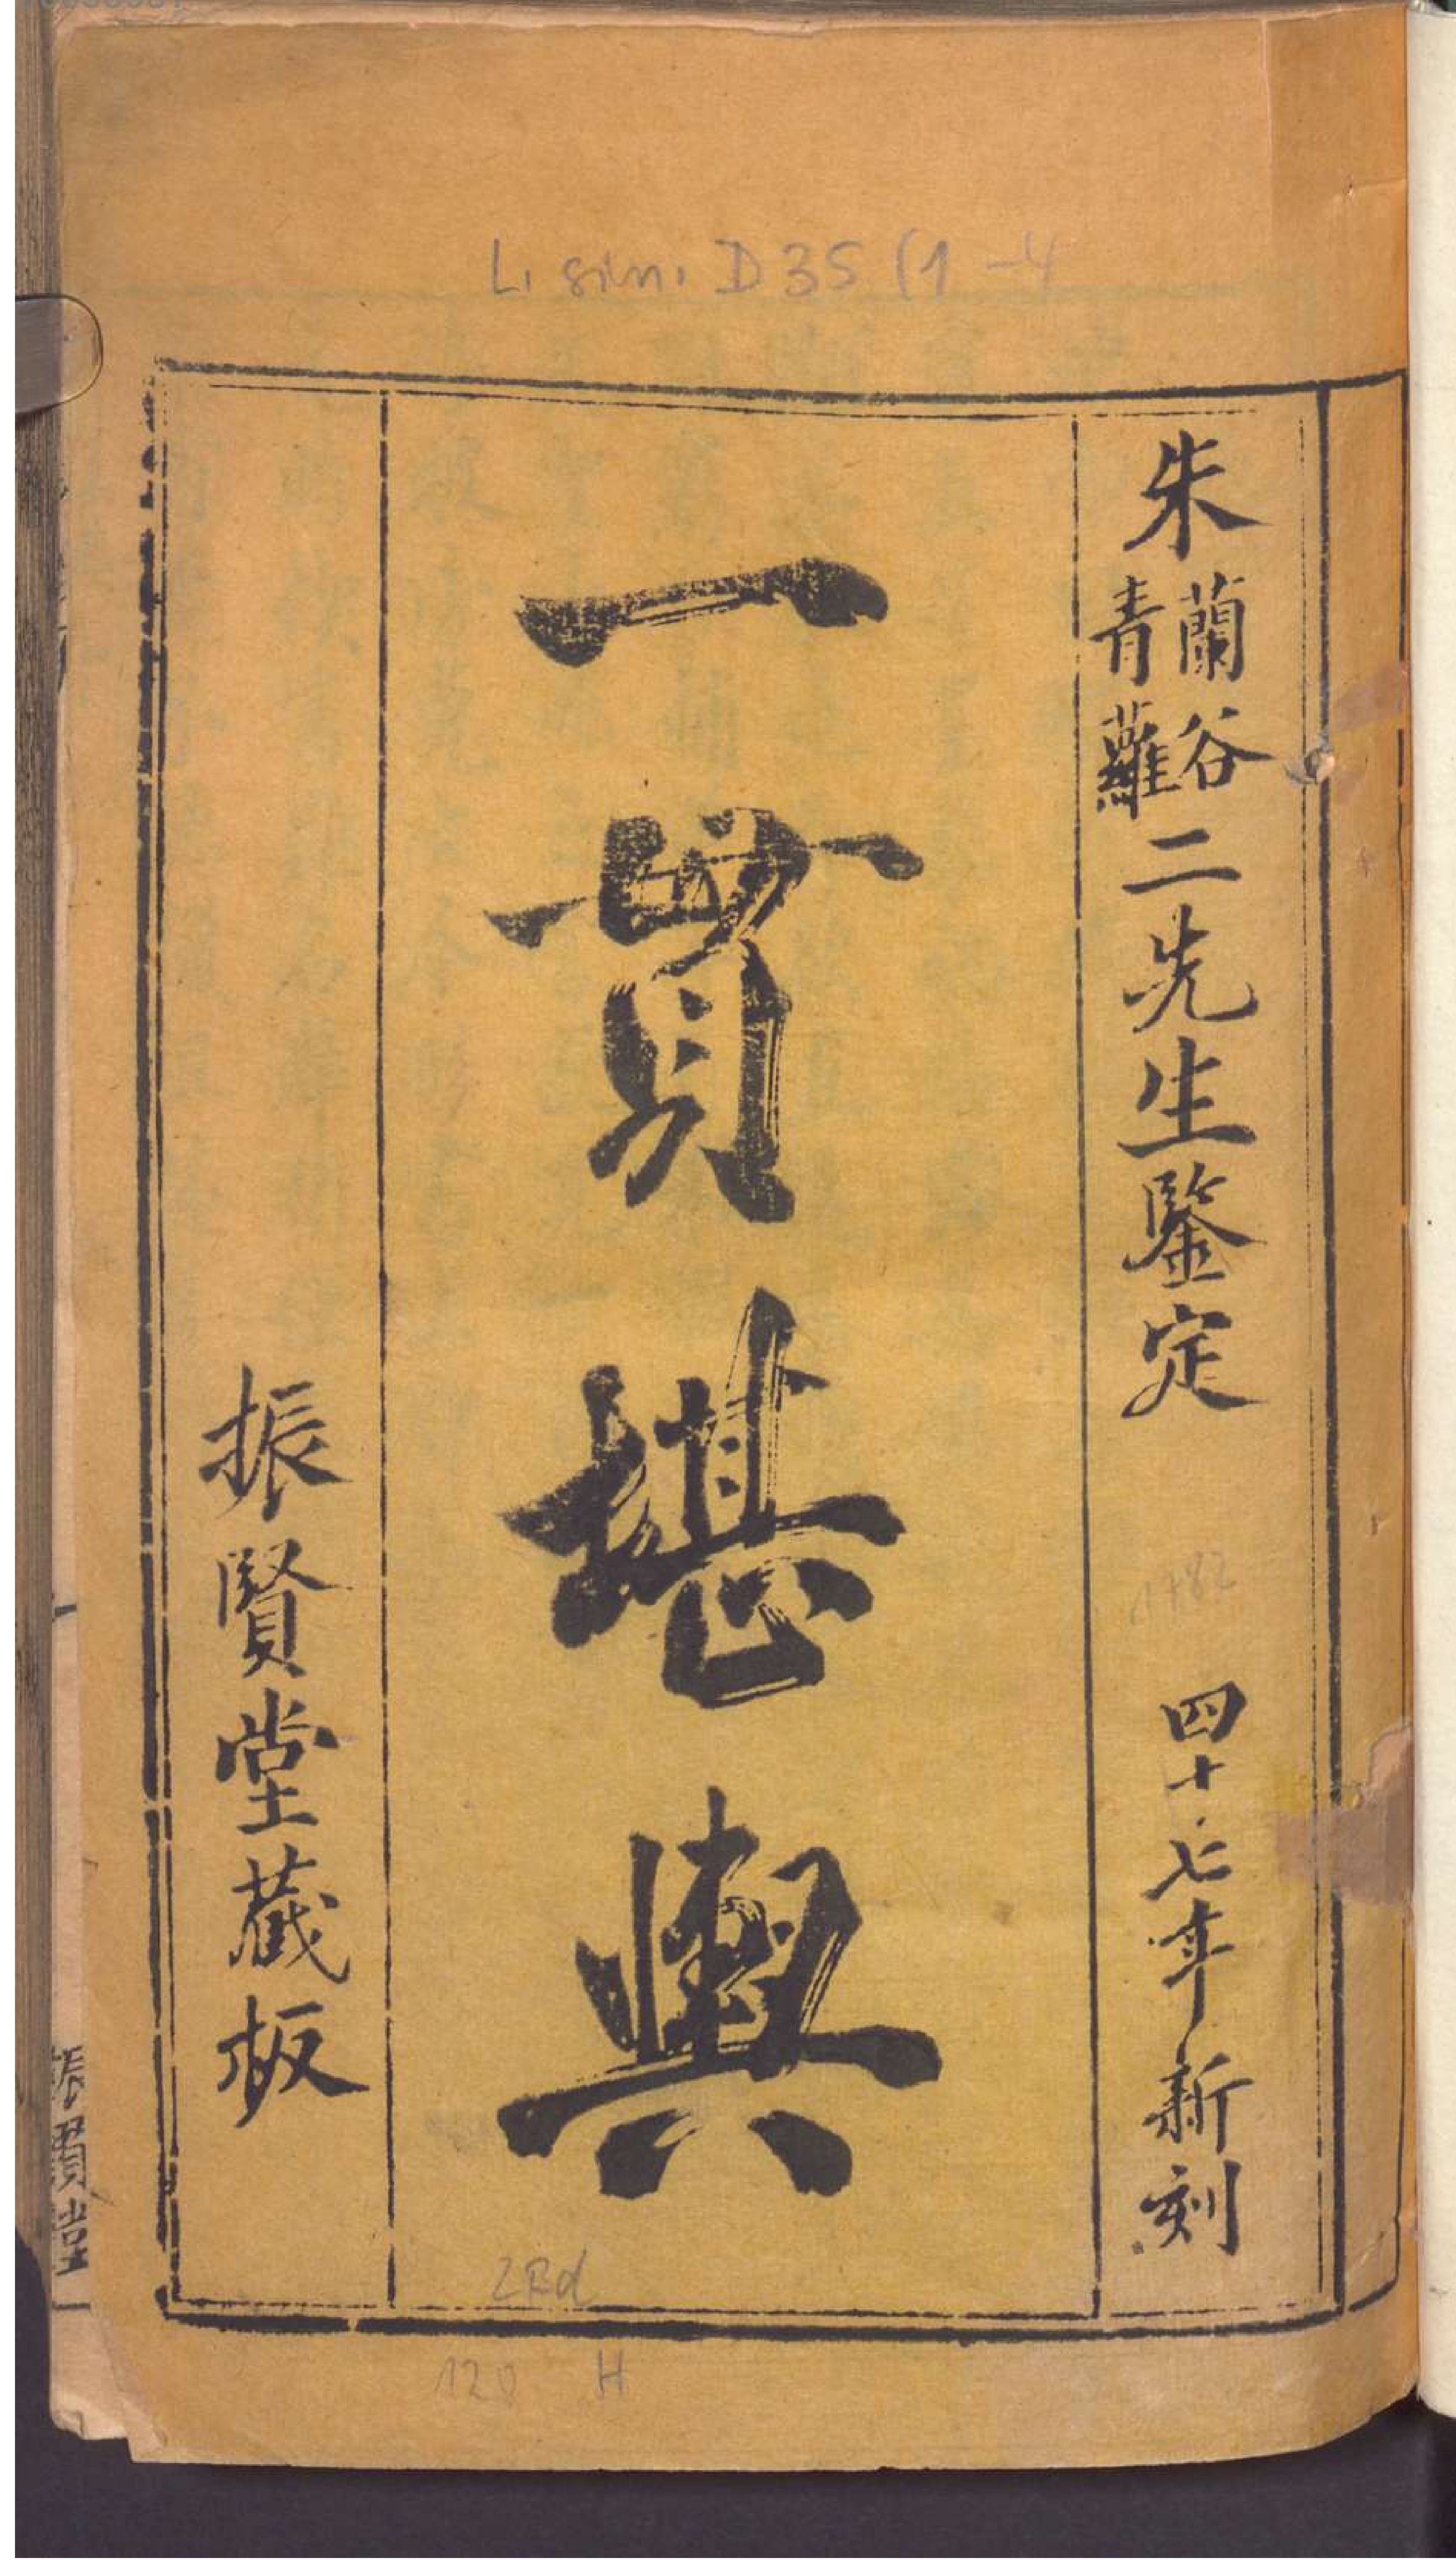 L. sin. D 35 (1-4
朱蘭谷青蘿二先生鑒定
四十七年新刻
一貫堪輿
振賢堂藏板
振賢堂
128 H